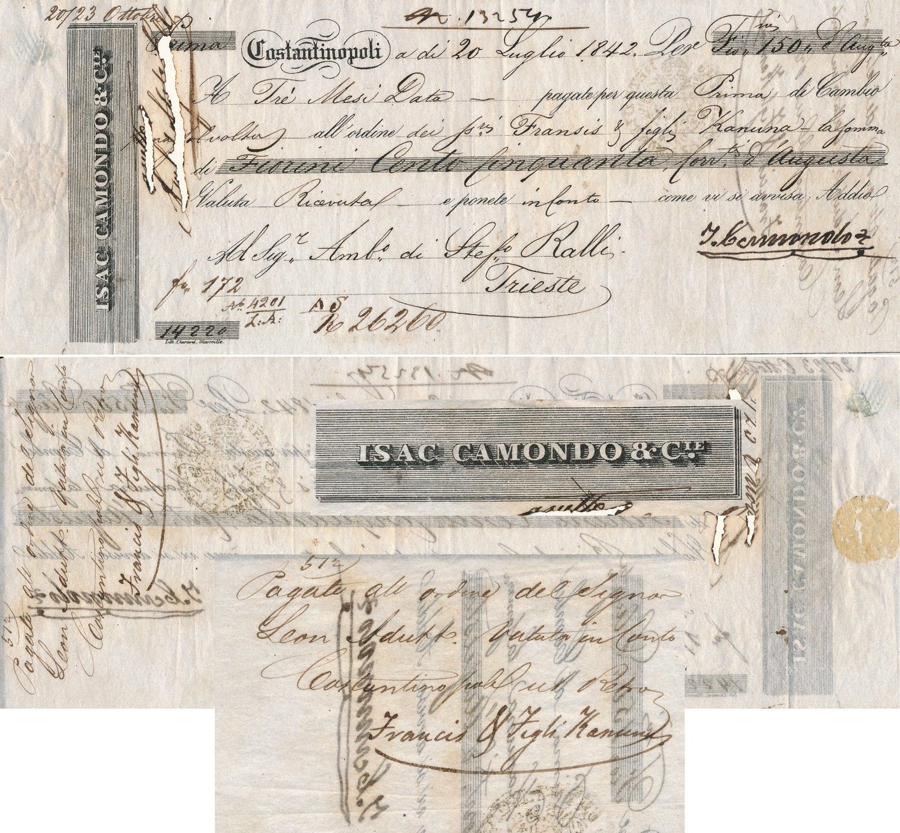 20/23 Ottobre
N. 13254
Prima Costantinopoli a di 20 Luglio 1842. Per Fio.ni 150, d'Aug.ta
A Tré Mesi Data — pagate per questa Prima di Cambio
una sol volta all'ordine dei s.ri Fransis & figli Kanuna — la somma
di Fiorini Cento Cinquanta, corr.ti d'Augusta
Valuta Ricevuta — e ponete in Conto — come vi si avvisa, Addio
Al Sig.r Amb.o di Stef.o Ralli
Trieste
I. Camondo & C.
fn 172
No 4201
R 26260.
14220
ISAC CAMONDO & C.IE
ISAC CAMONDO & C.IE
Pagate all ordine del Signor
Leon Adutt. Valuta in Conto
Costantinopoli ut Retro
Francis & Figli Kanuna
512
Pagate all ordine del Signor
Leon Adutt. Valuta in Conto
Costantinopoli ut Retro
Francis & Figli Kanuna
512